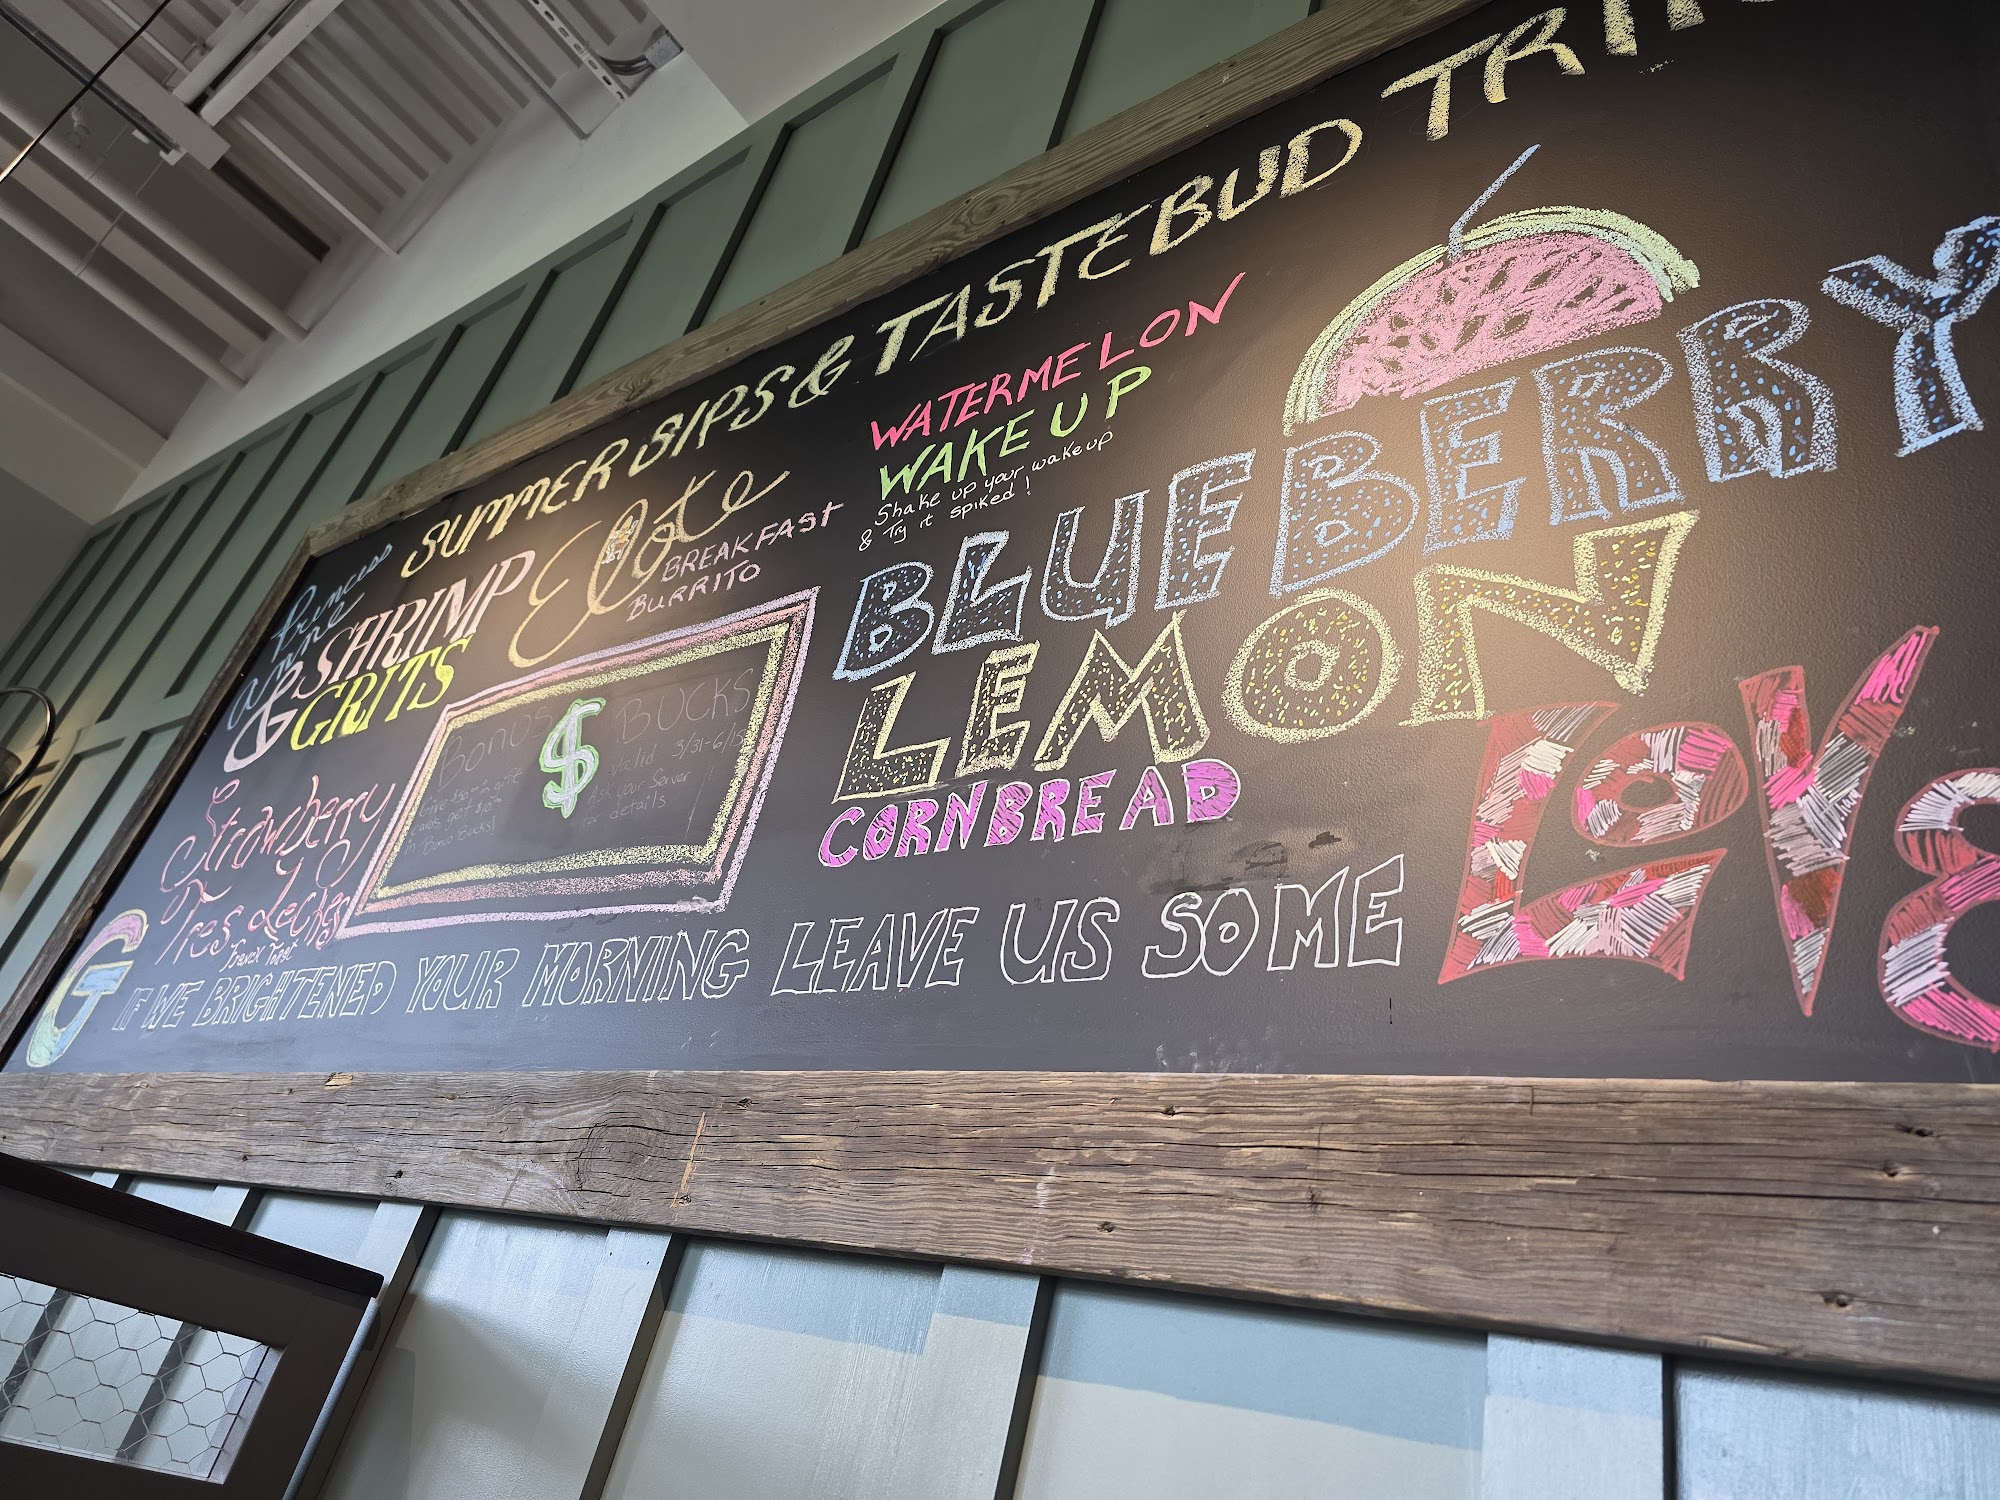 SUMMER SIPS & TASTEBUD
Princess
Anne
SHRIMP
& GRITS
Elote
BREAKFAST
BURRITO
WATERMELON
WAKE UP
Shake up your wakeup
& Try it spiked!
BLUEBERRY
LEMON
CORNBREAD
Strawberry
Tres Leches
French Toast
BONUS $ BUCKS
Give $50 in gift
cards, get $10
in Bonus Bucks!
Valid 3/31-6/15
Ask your Server
for details
G
IF WE BRIGHTENED YOUR MORNING LEAVE US SOME LOVE